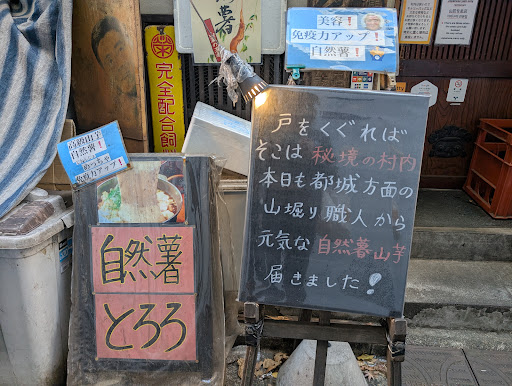 美容!
免疫力アップ!
自然薯!
完全配合飼
自然薯!
めっちゃ
免疫力アップ!
自然薯
とろろ
戸をくぐれば
そこは秘境の村内
本日も都城方面の
山堀り職人から
元気な自然薯山芋
届きました!